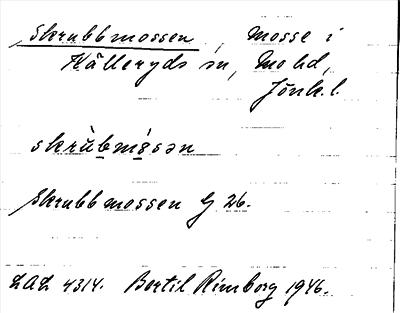 Skrubbmossen, mosse i
Källeryds sn, Mo hd,
Jönk. l.
skrùbmósən
Skrubbmossen G 26.
LAL 4314. Bertil Rimborg 1946.